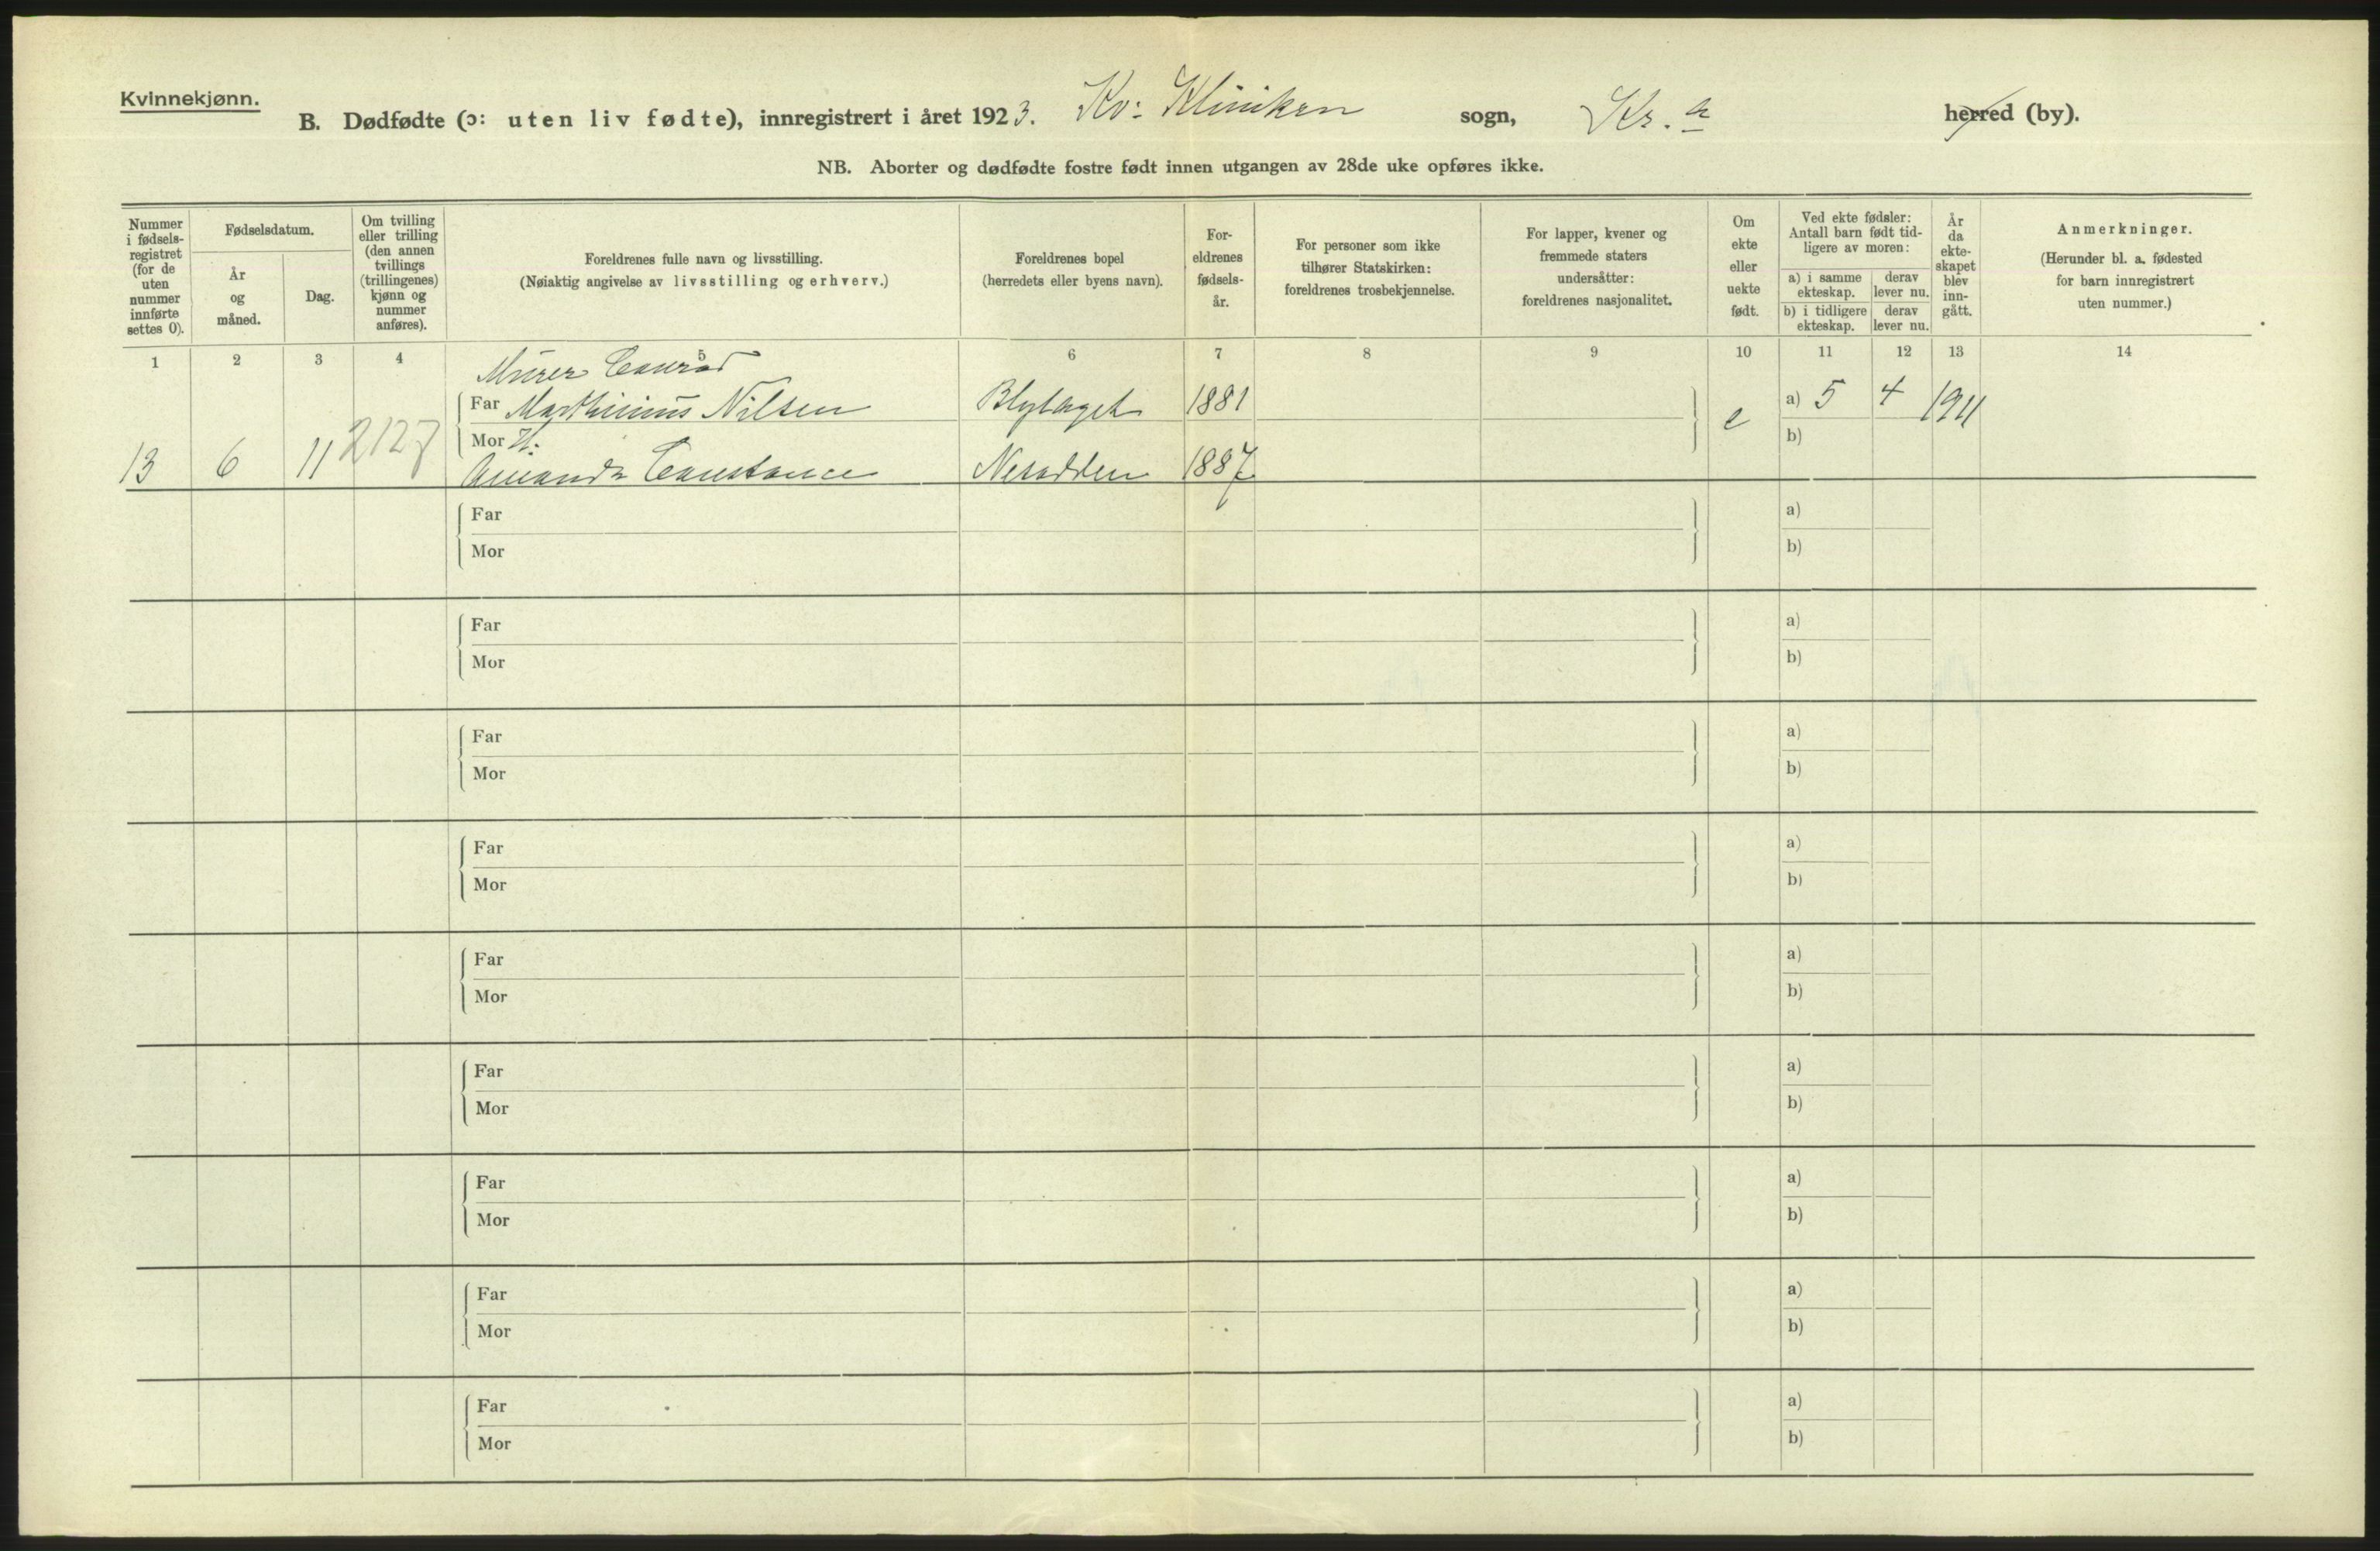 Kvinnekjønn.
B. Dødfødte (ɔ: uten liv fødte), innregistrert i året 1923. Kv: Kliniken sogn, Kr.a herred (by).
NB. Aborter og dødfødte fostre født innen utgangen av 28de uke opføres ikke.
Nummer i fødsels-registret (for de uten nummer innførte settes 0).
Fødselsdatum.
År og måned.
Dag.
Om tvilling eller trilling (den annen tvillings (trillingenes) kjønn og nummer anføres).
Foreldrenes fulle navn og livsstilling.
(Nøiaktig angivelse av livsstilling og erhverv.)
Foreldrenes bopel
(herredets eller byens navn).
For-eldrenes fødsels-år.
For personer som ikke tilhører Statskirken: foreldrenes trosbekjennelse.
For lapper, kvener og fremmede staters undersåtter: foreldrenes nasjonalitet.
Om ekte eller uekte født.
Ved ekte fødsler: Antall barn født tid-ligere av moren:
a) i samme ekteskap.
derav lever nu.
b) i tidligere ekteskap.
derav lever nu.
År da ekte-skapet blev inn-gått.
Anmerkninger.
(Herunder bl. a. fødested for barn innregistrert uten nummer.)
1 2 3 4 6 7 8 9 10 11 12 13 14
Murer Conrad 5
Far Marthinius Nilsen Blylaget 1881 e a) 5 4 1911
Mor H. b)
13 6 11 2127 Amanda Constance Nesodden 1887
Far a)
Mor b)
Far a)
Mor b)
Far a)
Mor b)
Far a)
Mor b)
Far a)
Mor b)
Far a)
Mor b)
Far a)
Mor b)
Far a)
Mor b)
Far a)
Mor b)